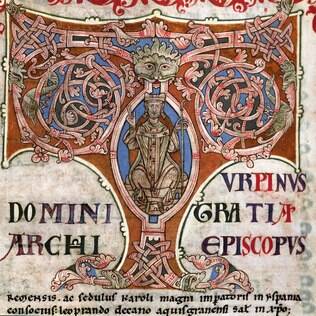 TURPINUS
DOMINI GRATIA
ARCHI EPISCOPUS
REMENSIS. ac sedulus karoli magni impatoris in yspania
consocius: leoprando decano aquisgranensi sal̄t in xp̄o;